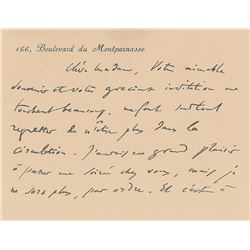 166, Boulevard du Montparnasse
Chère Madame, Votre aimable
souvenir et votre gracieuse invitation me
touchent beaucoup. me font surtout
regretter de n'être plus dans la
circulation. J'aurais eu grand plaisir
à passer une soirée chez vous, mais je
ne sors plus, par ordre. Et c'est à